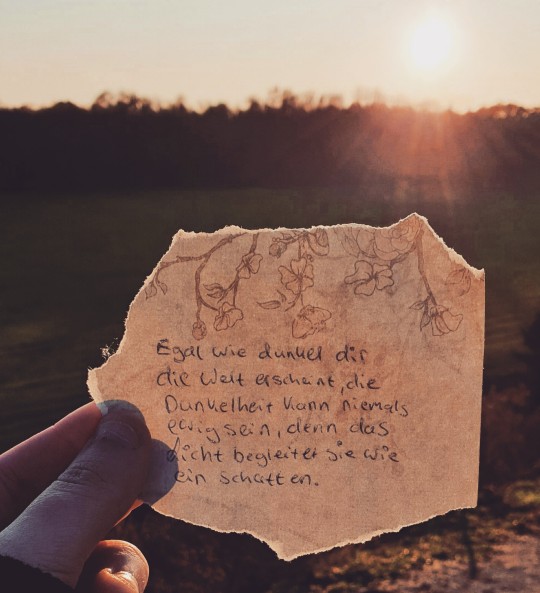 Egal wie dunkel dir
die Welt erscheint, die
Dunkelheit kann niemals
ewig sein, denn das
Licht begleitet sie wie
ein Schatten.